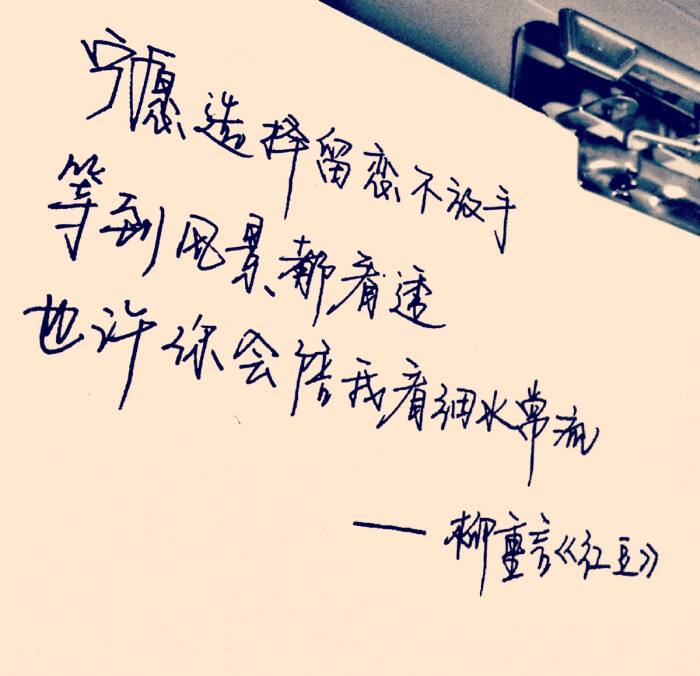 宁愿选择留恋不放手
等到风景都看透
也许你会陪我看细水常流
——柳重言《红豆》